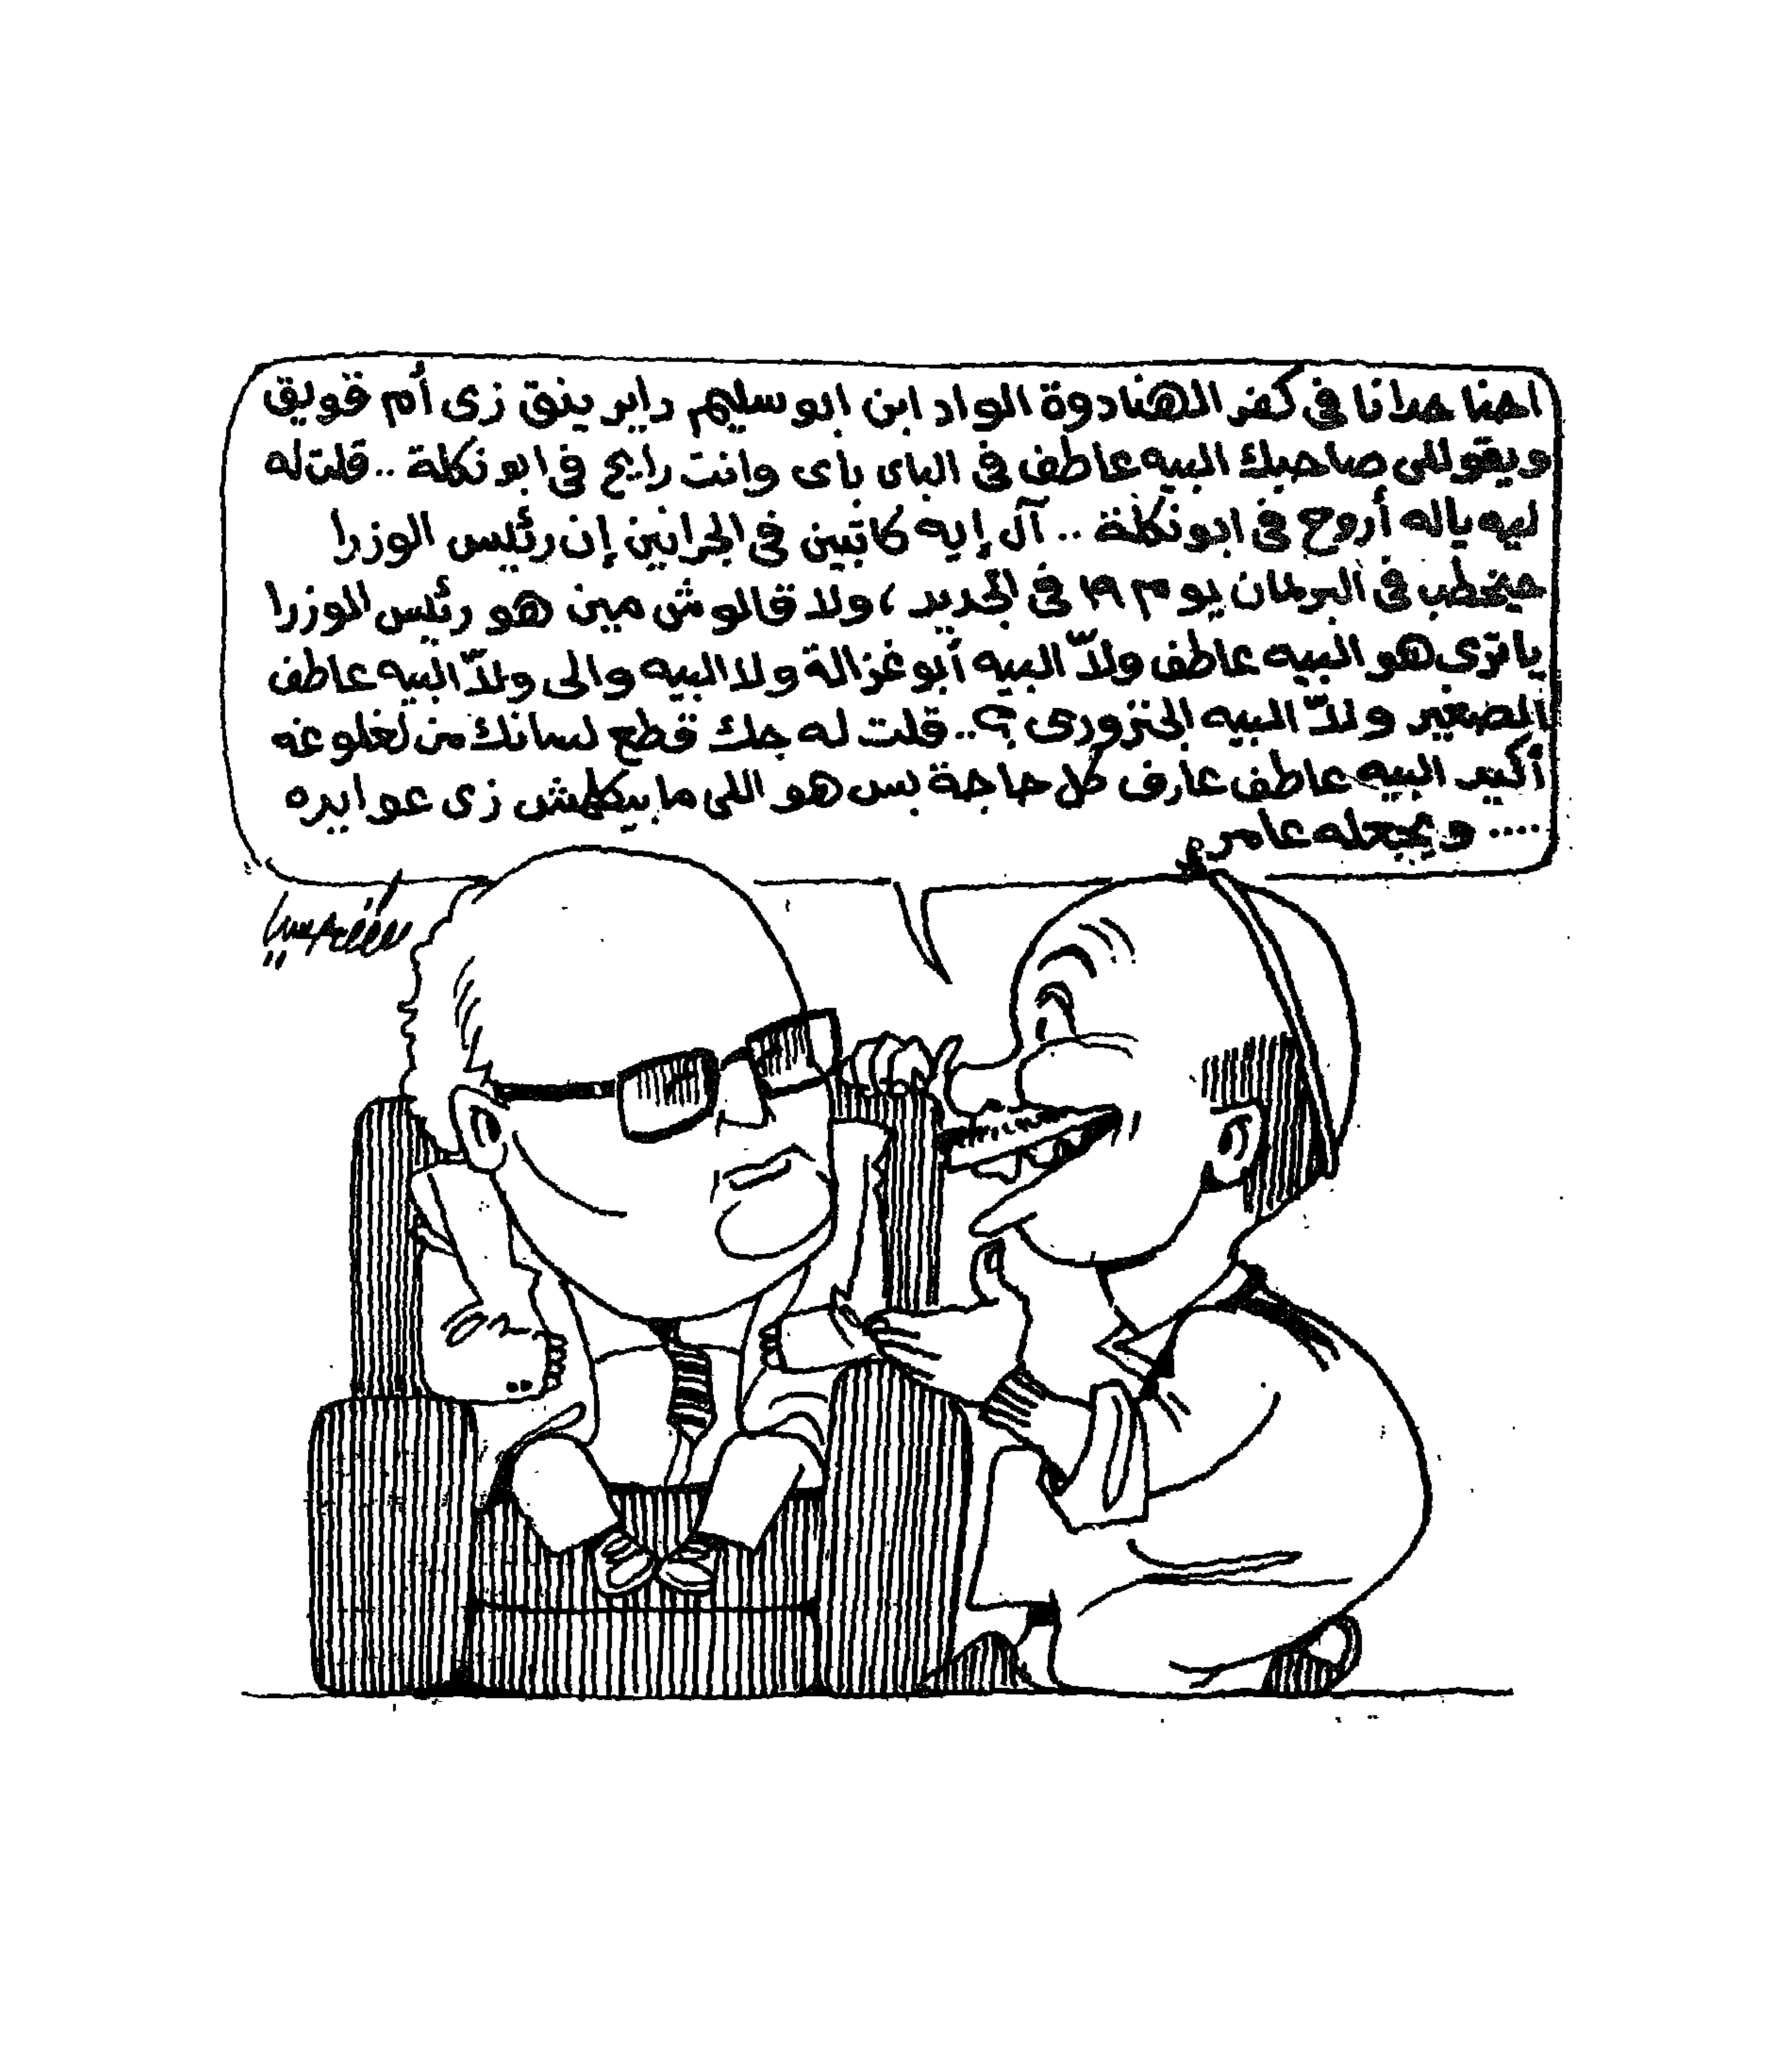 احنا حدانا فى كفر الهنادوة الواد ابن ابو سليم داير ينق زى أم قويق
ويقوللى صاحبك البيه عاطف فى الباى باى وانت رايح فى ابو نكلة .. قلت له
ليه ياله أروح فى ابو نكلة .. آل إيه كاتبين فى الجرانين إن رئيس الوزرا
حيخطب فى البرلمان يوم ١٩ فى الجديد ، ولا قالوش مين هو رئيس الوزرا
يا ترى هو البيه عاطف ولاّ البيه أبو غزالة ولا البيه والى ولاّ البيه عاطف
الصغير ولاّ البيه الجنزورى ؟.. قلت له جك قطع لسانك من لغلوغه
أكيد البيه عاطف عارف كل حاجة بس هو اللى ما بيكلمش زى عوايده
.... ويجعله عامر